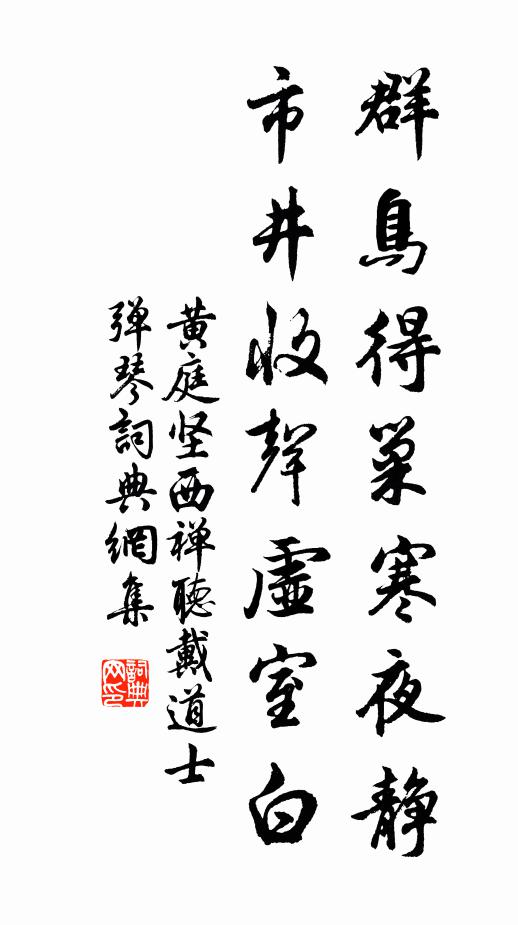 群鳥得巢寒夜靜
市井收聲虛室白
黃庭坚西禅聽戴道士
弹琴詞典網集
詞典
网印